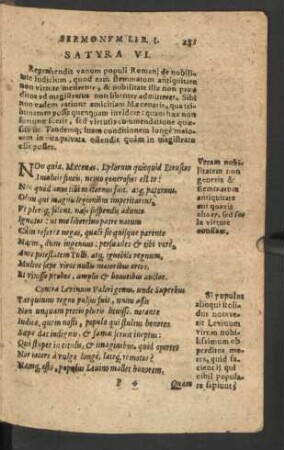 SERMONVM LIB. I. 231
SATYRA VI.
Reprehendit vanum populi Romani de nobili-
tate iudicium, quod eam stemmatum antiquitate
non virtute metiretur, & nobilitate illa non præ-
ditos ad magistratus non libenter admitteret. Sibi
non eadem ratione amicitiam Mæcenatis, qua tri-
bunatum posse quenquam inuidere: quam haud
fortunæ fuerit, sed virtutis commendatione quæ-
sita sit. Tandemque suam conditionem longè maio-
rem in vita priuata ostendit quàm in magistratu
esse posset.
NOn quia, Mæcenas, Lydorum quicquid Etruscos
Incoluit fineis, nemo generosior est te:
Nec quod auus tibi maternus fuit, atq, paternus,
Olim qui magnis legionibus imperitarint,
Vt pleriq, solent, naso suspendis adunco
Ignotos: ut me libertino patre natum
Cùm referre negas, quali sit quisque parente
Natus, dum ingenuus: persuades hoc tibi verè,
Ante potestatem Tulli, atq, ignobile regnum,
Multos sæpe viros nullis maioribus ortos,
Et vixisse probos, amplis & honoribus auctos.
Contrà Leuinum Valeri genus, unde Superbus
Tarquinius regno pulsus fuit, unius assis
Non unquam precio pluris licuisse, notante
Iudice, quem nosti, populo qui stultus honores
Sæpe dat indignis, & famæ seruit ineptus:
Qui stupet in titulis, & imaginibus. quid oportet
Nos facere à vulgo longè, latéq, remotos?
Namq, esto, populus Leuino mallet honorem,
P 4 Quàm
Veram nobi-
litatem non
generis &
stemmatum
antiquitate
mariti quàm
alior, sed sola
virtute
constare.
Si populus
alioqui stoli-
dus notaue-
rit Leuinum
virum nobi-
lissimum ob
perditos mo-
res, quid fa-
ciendum
qui cùm
nihil popula-
re sapiunt?